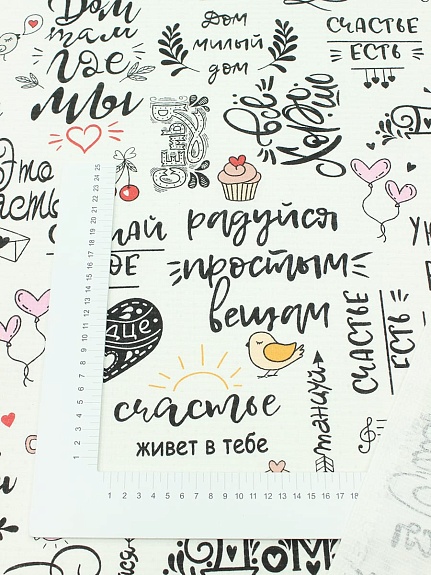 Дом
там
где
мы
Дом
милый
дом
СЧАСТЬЕ
ЕСТЬ
всё
хорошо
Семья
Это
радуйся
простым
вещам
СЧАСТЬЕ
ЕСТЬ
счастье
живет в тебе
танцуй
25
24
23
22
21
20
19
18
17
16
15
14
13
12
11
10
9
8
7
6
5
4
3
2
1
1 2 3 4 5 6 7 8 9 10 11 12 13 14 15 16 17 18